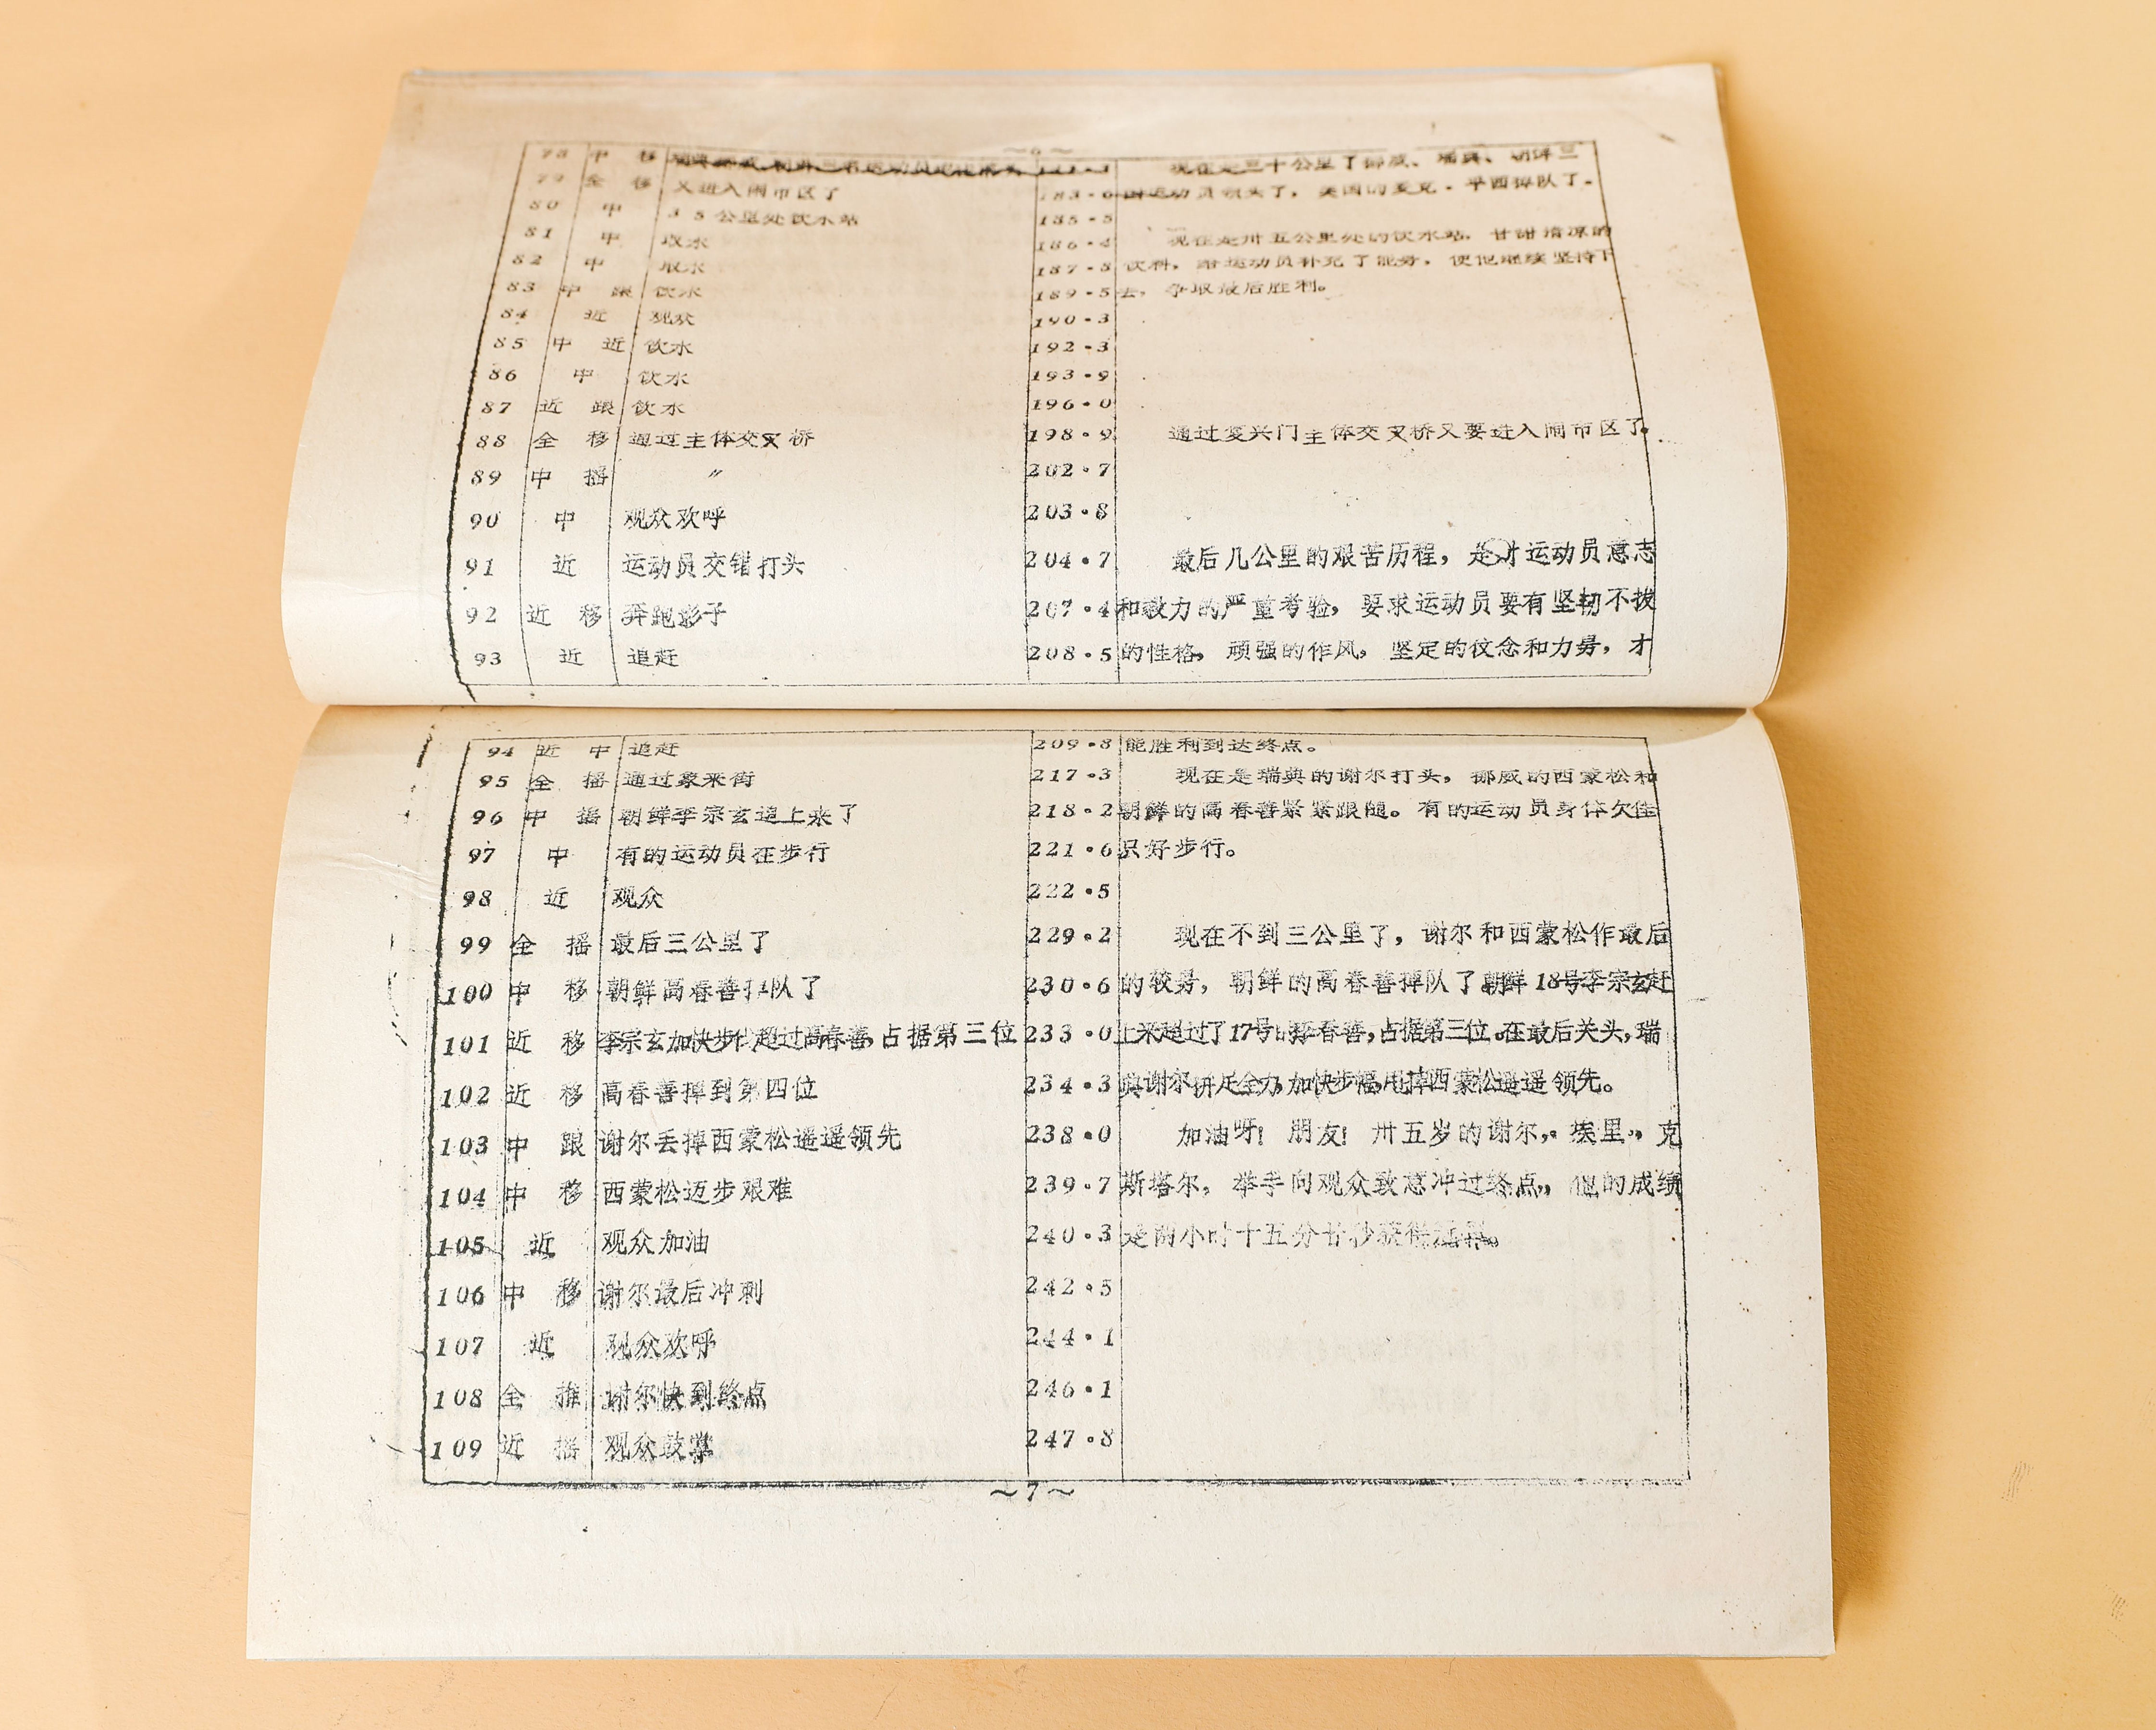 ~6~
78 中 移
现在是三十公里了挪威、瑞典、朝鲜三
79 全 移 又进入闹市区了 183·6 国运动员领头了，美国的麦克·平西掉队了。
80 中 35公里处饮水站 185·5
81 中 取水 186·4 现在是卅五公里处的饮水站，甘甜清凉的
82 中 取水 187·8 饮料，给运动员补充了能量，使他继续坚持下
83 中 跟 饮水 189·5 去，争取最后胜利。
84 近 观众 190·3
85 中 近 饮水 192·3
86 中 饮水 193·9
87 近 跟 饮水 196·0
88 全 移 通过主体交叉桥 198·9 通过复兴门主体交叉桥又要进入闹市区了。
89 中 摇 〃 202·7
90 中 观众欢呼 203·8
91 近 运动员交错打头 204·7 最后几公里的艰苦历程，是对运动员意志
92 近 移 奔跑影子 207·4 和毅力的严重考验，要求运动员要有坚韧不拔
93 近 追赶 208·5 的性格，顽强的作风，坚定的仗念和力量，才
94 近 中 追赶 209·8 能胜利到达终点。
95 全 摇 通过象来街 217·3 现在是瑞典的谢尔打头，挪威的西蒙松和
96 中 摇 朝鲜李宗玄追上来了 218·2 朝鲜的高春善紧紧跟随。有的运动员身体欠佳
97 中 有的运动员在步行 221·6 只好步行。
98 近 观众 222·5
99 全 摇 最后三公里了 229·2 现在不到三公里了，谢尔和西蒙松作最后
100 中 移 朝鲜高春善掉队了 230·6 的较量，朝鲜的高春善掉队了朝鲜18号李宗玄赶
101 近 移 李宗玄加快步伐超过高春善，占据第三位 233·0 上来超过了17号的高春善，占据第三位。在最后关头，瑞
102 近 移 高春善掉到第四位 234·3 典谢尔拼足全力，加快步幅，甩掉西蒙松遥遥领先。
103 中 跟 谢尔丢掉西蒙松遥遥领先 238·0 加油呀！朋友！卅五岁的谢尔，·埃里·，克
104 中 移 西蒙松迈步艰难 239·7 斯塔尔，举手向观众致意冲过终点，他的成绩
105 近 观众加油 240·3 是两小时十五分廿秒获得冠军。
106 中 移 谢尔最后冲刺 242·5
107 近 观众欢呼 244·1
108 全 推 谢尔快到终点 246·1
109 近 摇 观众鼓掌 247·8
~7~